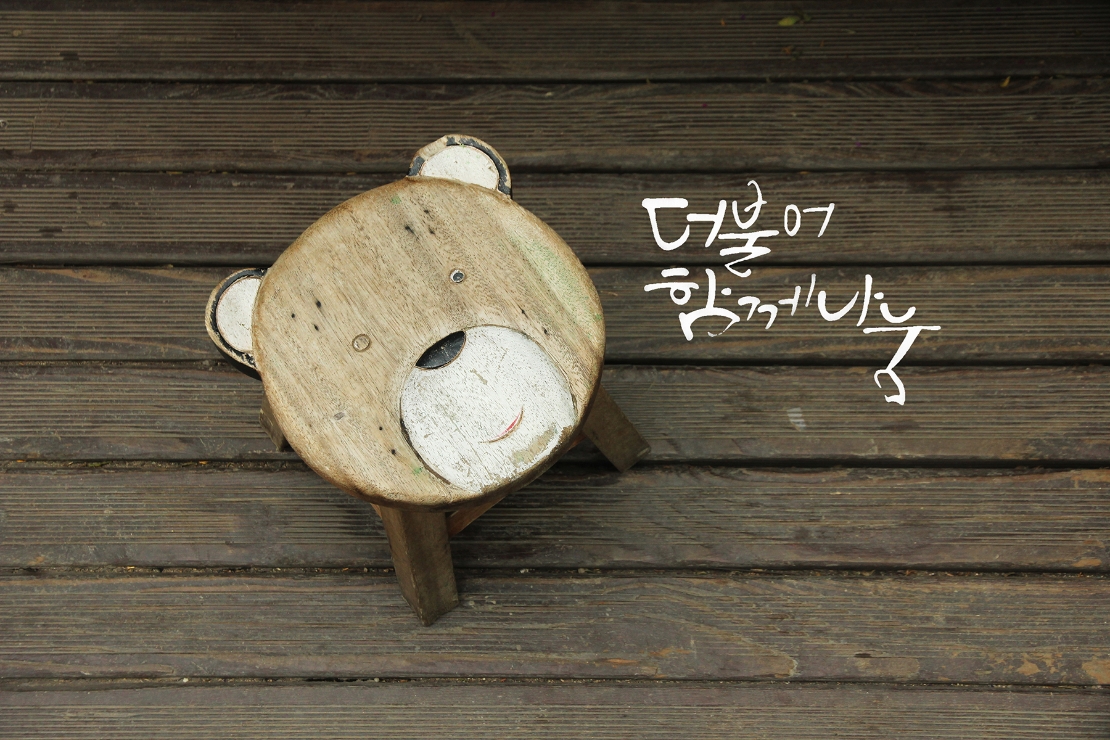 더불어
함께나눔